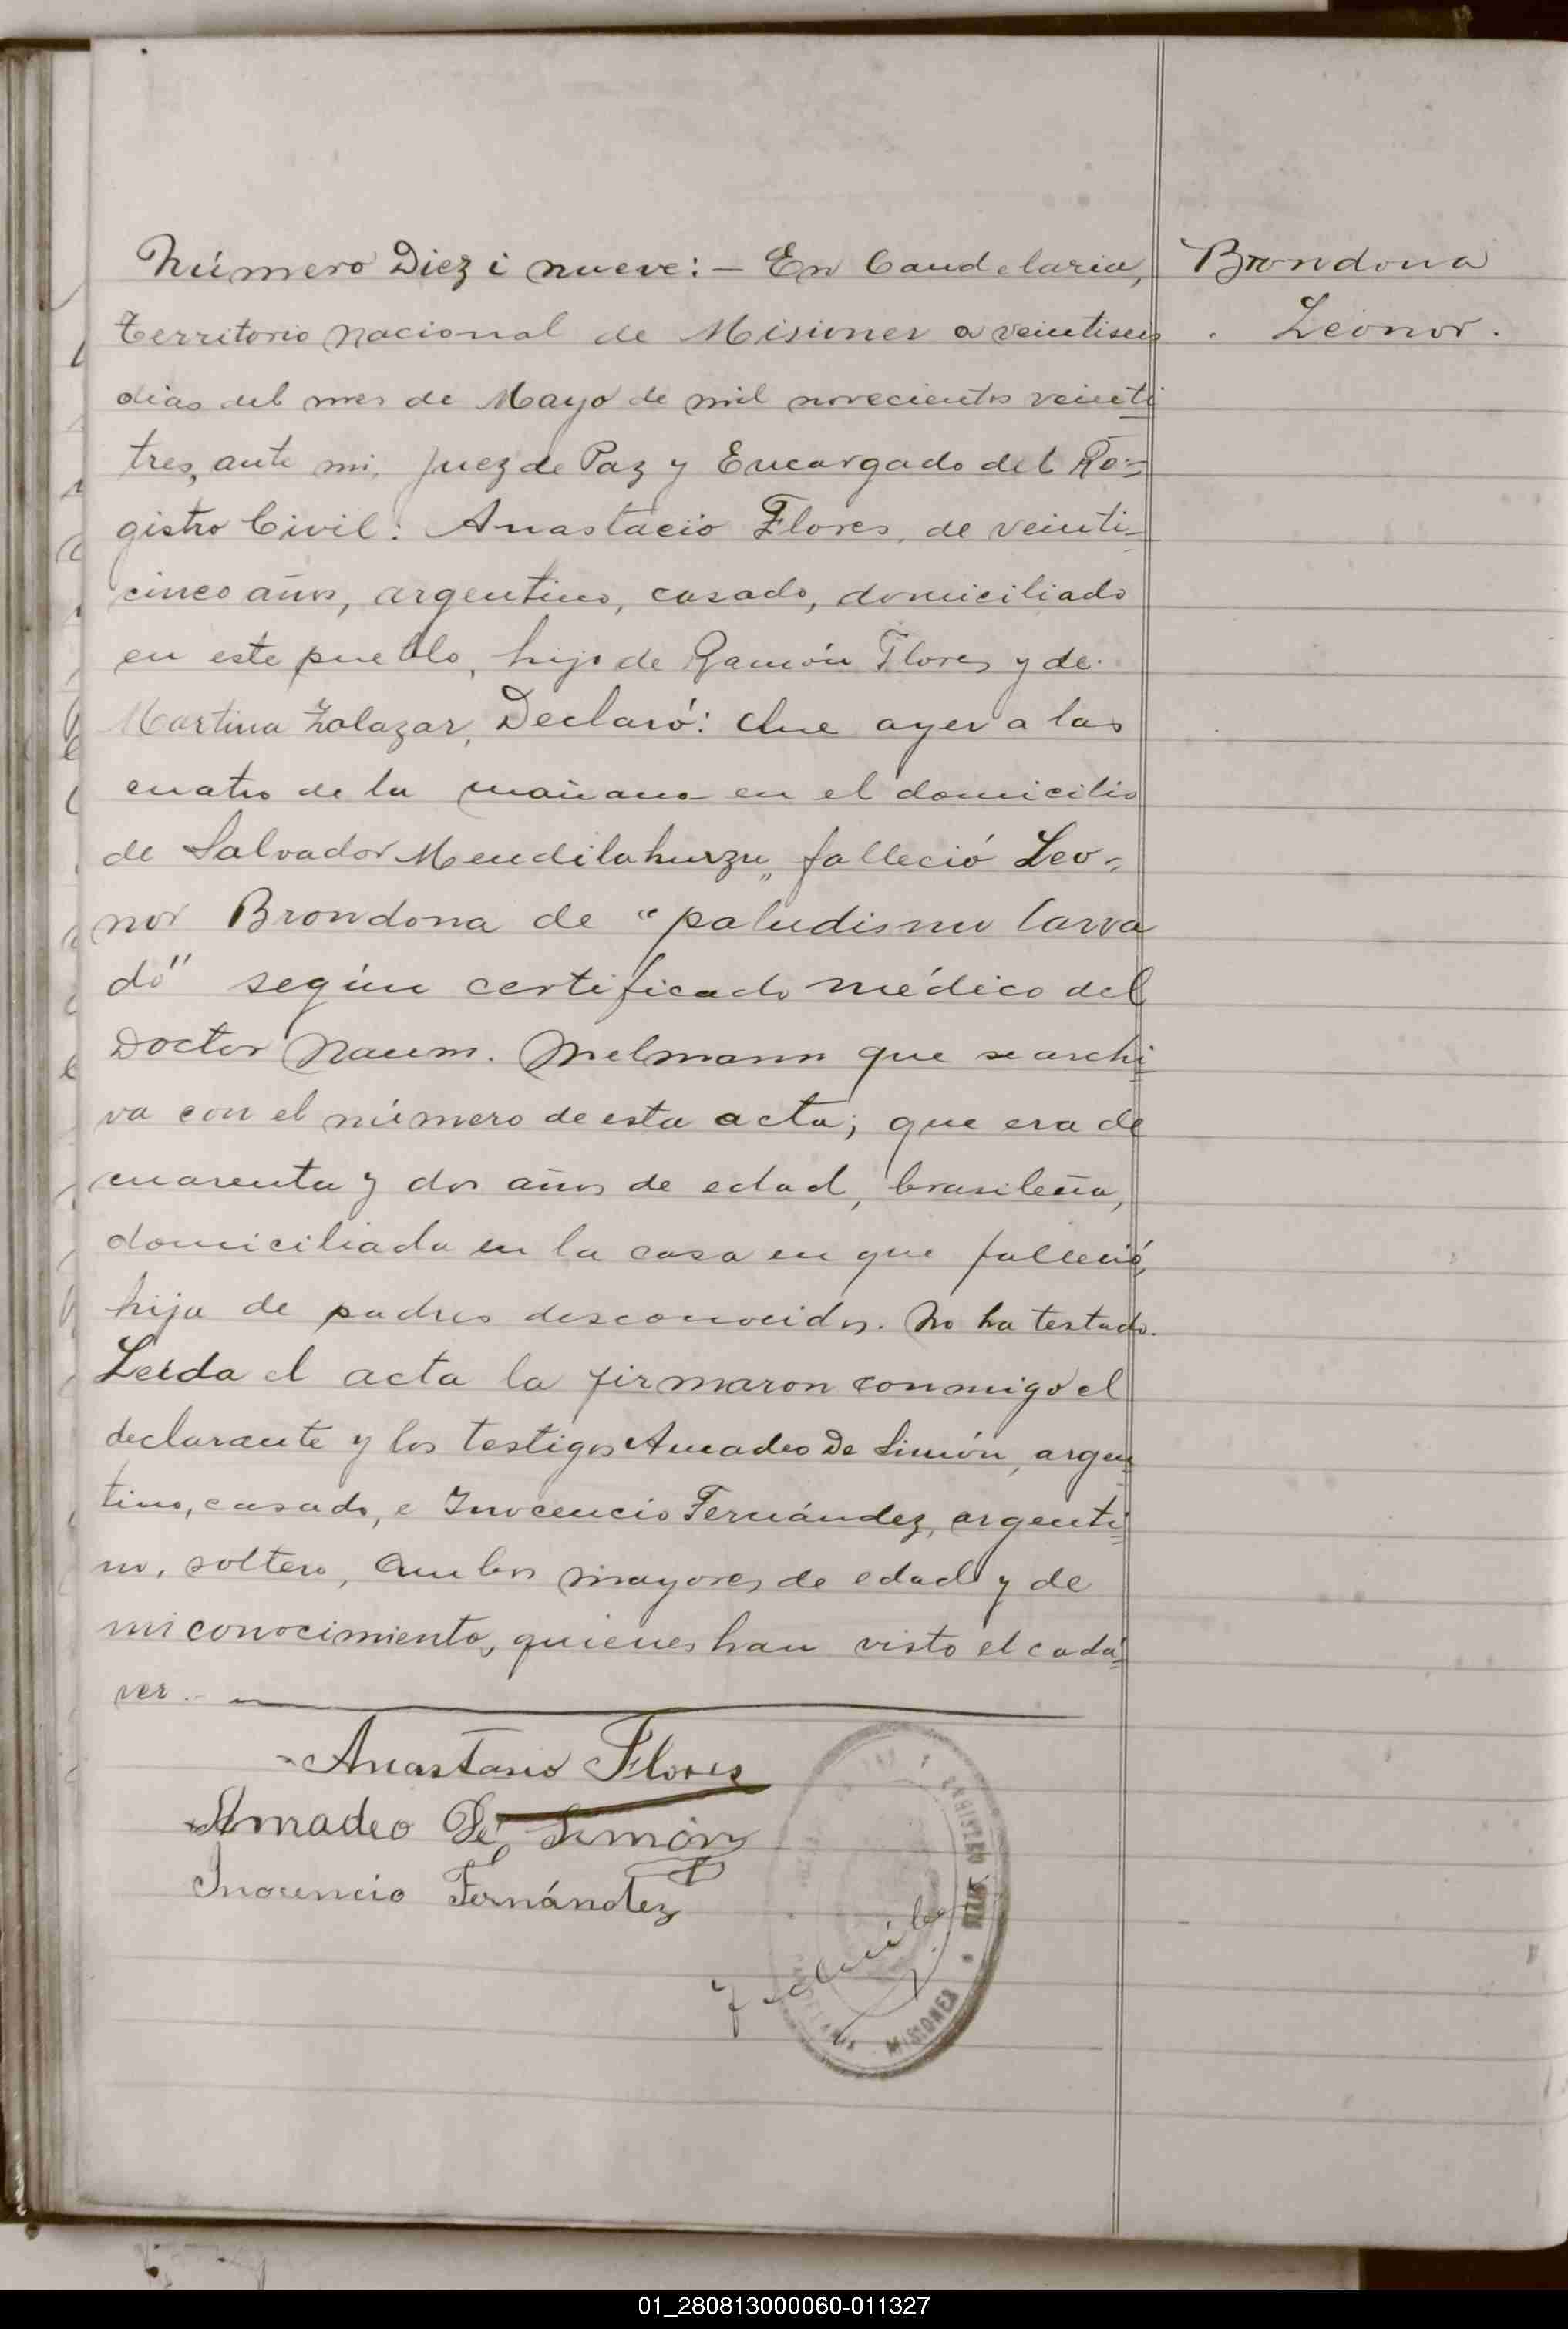 Número Diez i nueve: — En Candelaria,
territorio nacional de Misiones a veintiseis
dias del mes de Mayo de mil novecientos veinti
tres, ante mi, Juez de Paz y Encargado del Re=
gistro Civil: Anastacio Flores, de veinti-
cinco años, argentino, casado, domiciliado
en este pueblo, hijo de Ramón Flores y de
Martina Zalazar, Declaró: Que ayer a las
cuatro de la mañana en el domicilio
de Salvador Mendilahurzu, falleció Leo=
nor Brondona de "paludismo larva
do" según certificado médico del
Doctor Naum. Melmann que se archi
va con el número de esta acta; que era de
cuarenta y dos años de edad, brasileña,
domiciliada en la casa en que falleció,
hija de padres desconocidos. No ha testado.
Leida el acta la firmaron conmigo el
declarante y los testigos Amadeo De Simón, argen
tino, casado, e Inocencio Fernández, argenti
no, soltero, ambos mayores de edad y de
mi conocimiento, quienes han visto el cadá
ver.
Brondona
Leonor.
Anastasio Flores
Amadeo De Simón
Inocencio Fernández
REGISTRO CIVIL
CANDELARIA MISIONES
01_280813000060-011327